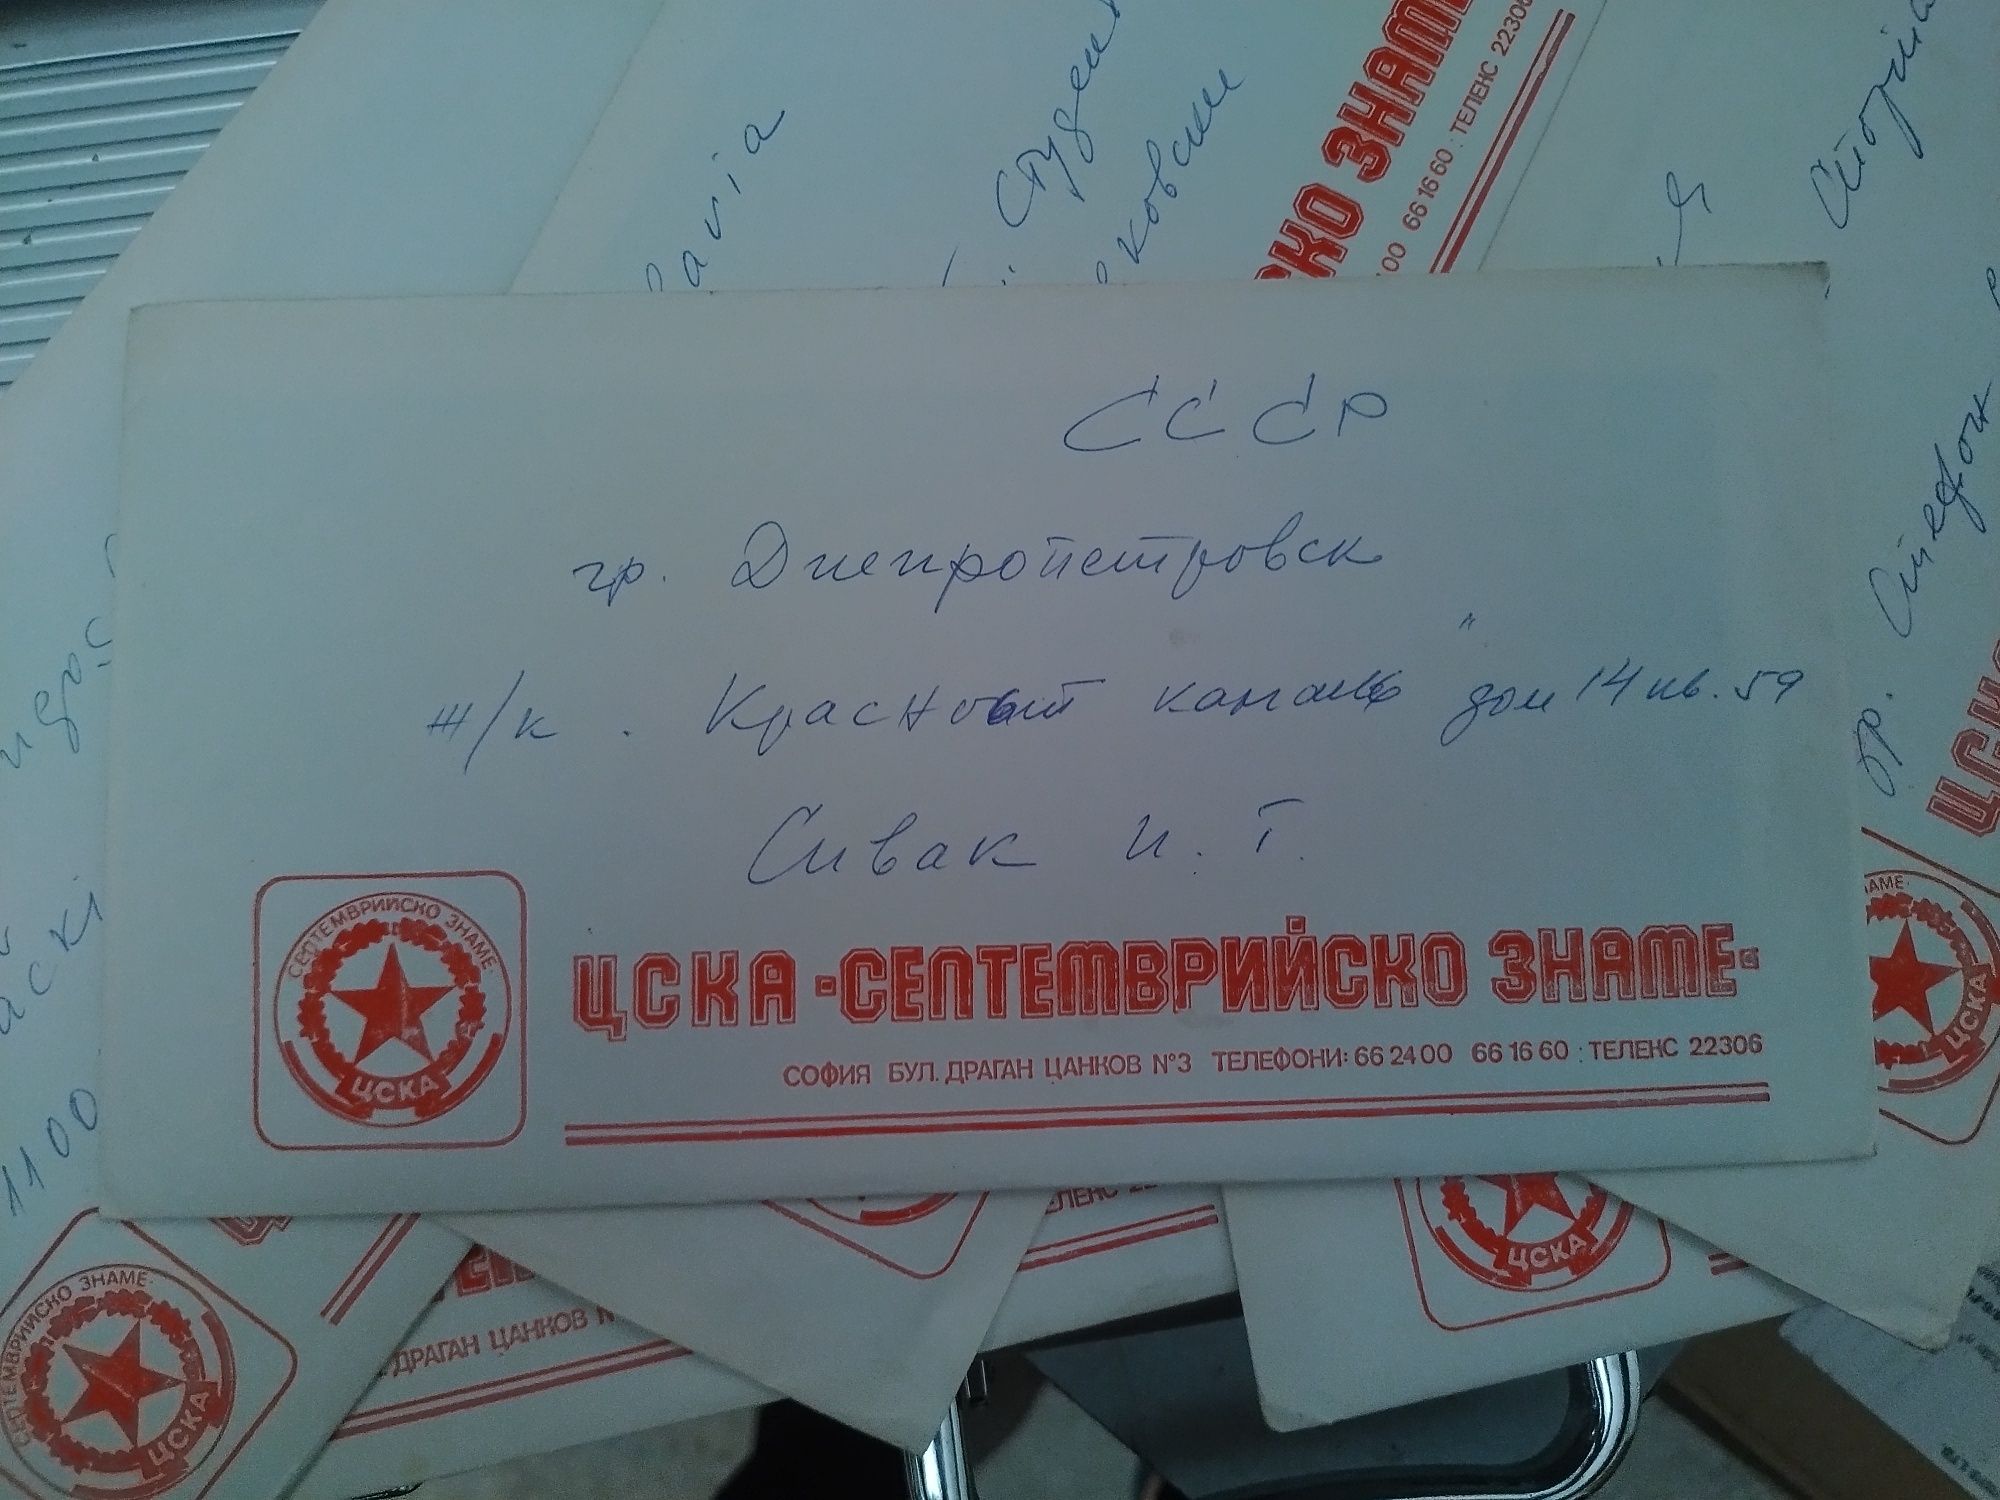 СССР
гр. Днепропетровск
ж/к. Красный камень" дом 14 кв. 59
Сивак И. Г.
СЕПТЕМВРИЙСКО ЗНАМЕ
ЦСКА
ЦСКА "СЕПТЕМВРИЙСКО ЗНАМЕ"
СОФИЯ БУЛ. ДРАГАН ЦАНКОВ №3 ТЕЛЕФОНИ: 66 24 00 66 16 60 : ТЕЛЕКС 22306
avia
ковски
РСКО ЗНАМЕ
00 66 16 60 : ТЕЛЕКС 22306
бр. Стефон
ЦСКА
ЗНАМЕ
ЦСКА
1100
СЕПТЕМВРИЙСКО ЗНАМЕ
ЦСКА
ДРАГАН ЦАНКОВ
ЦСКА